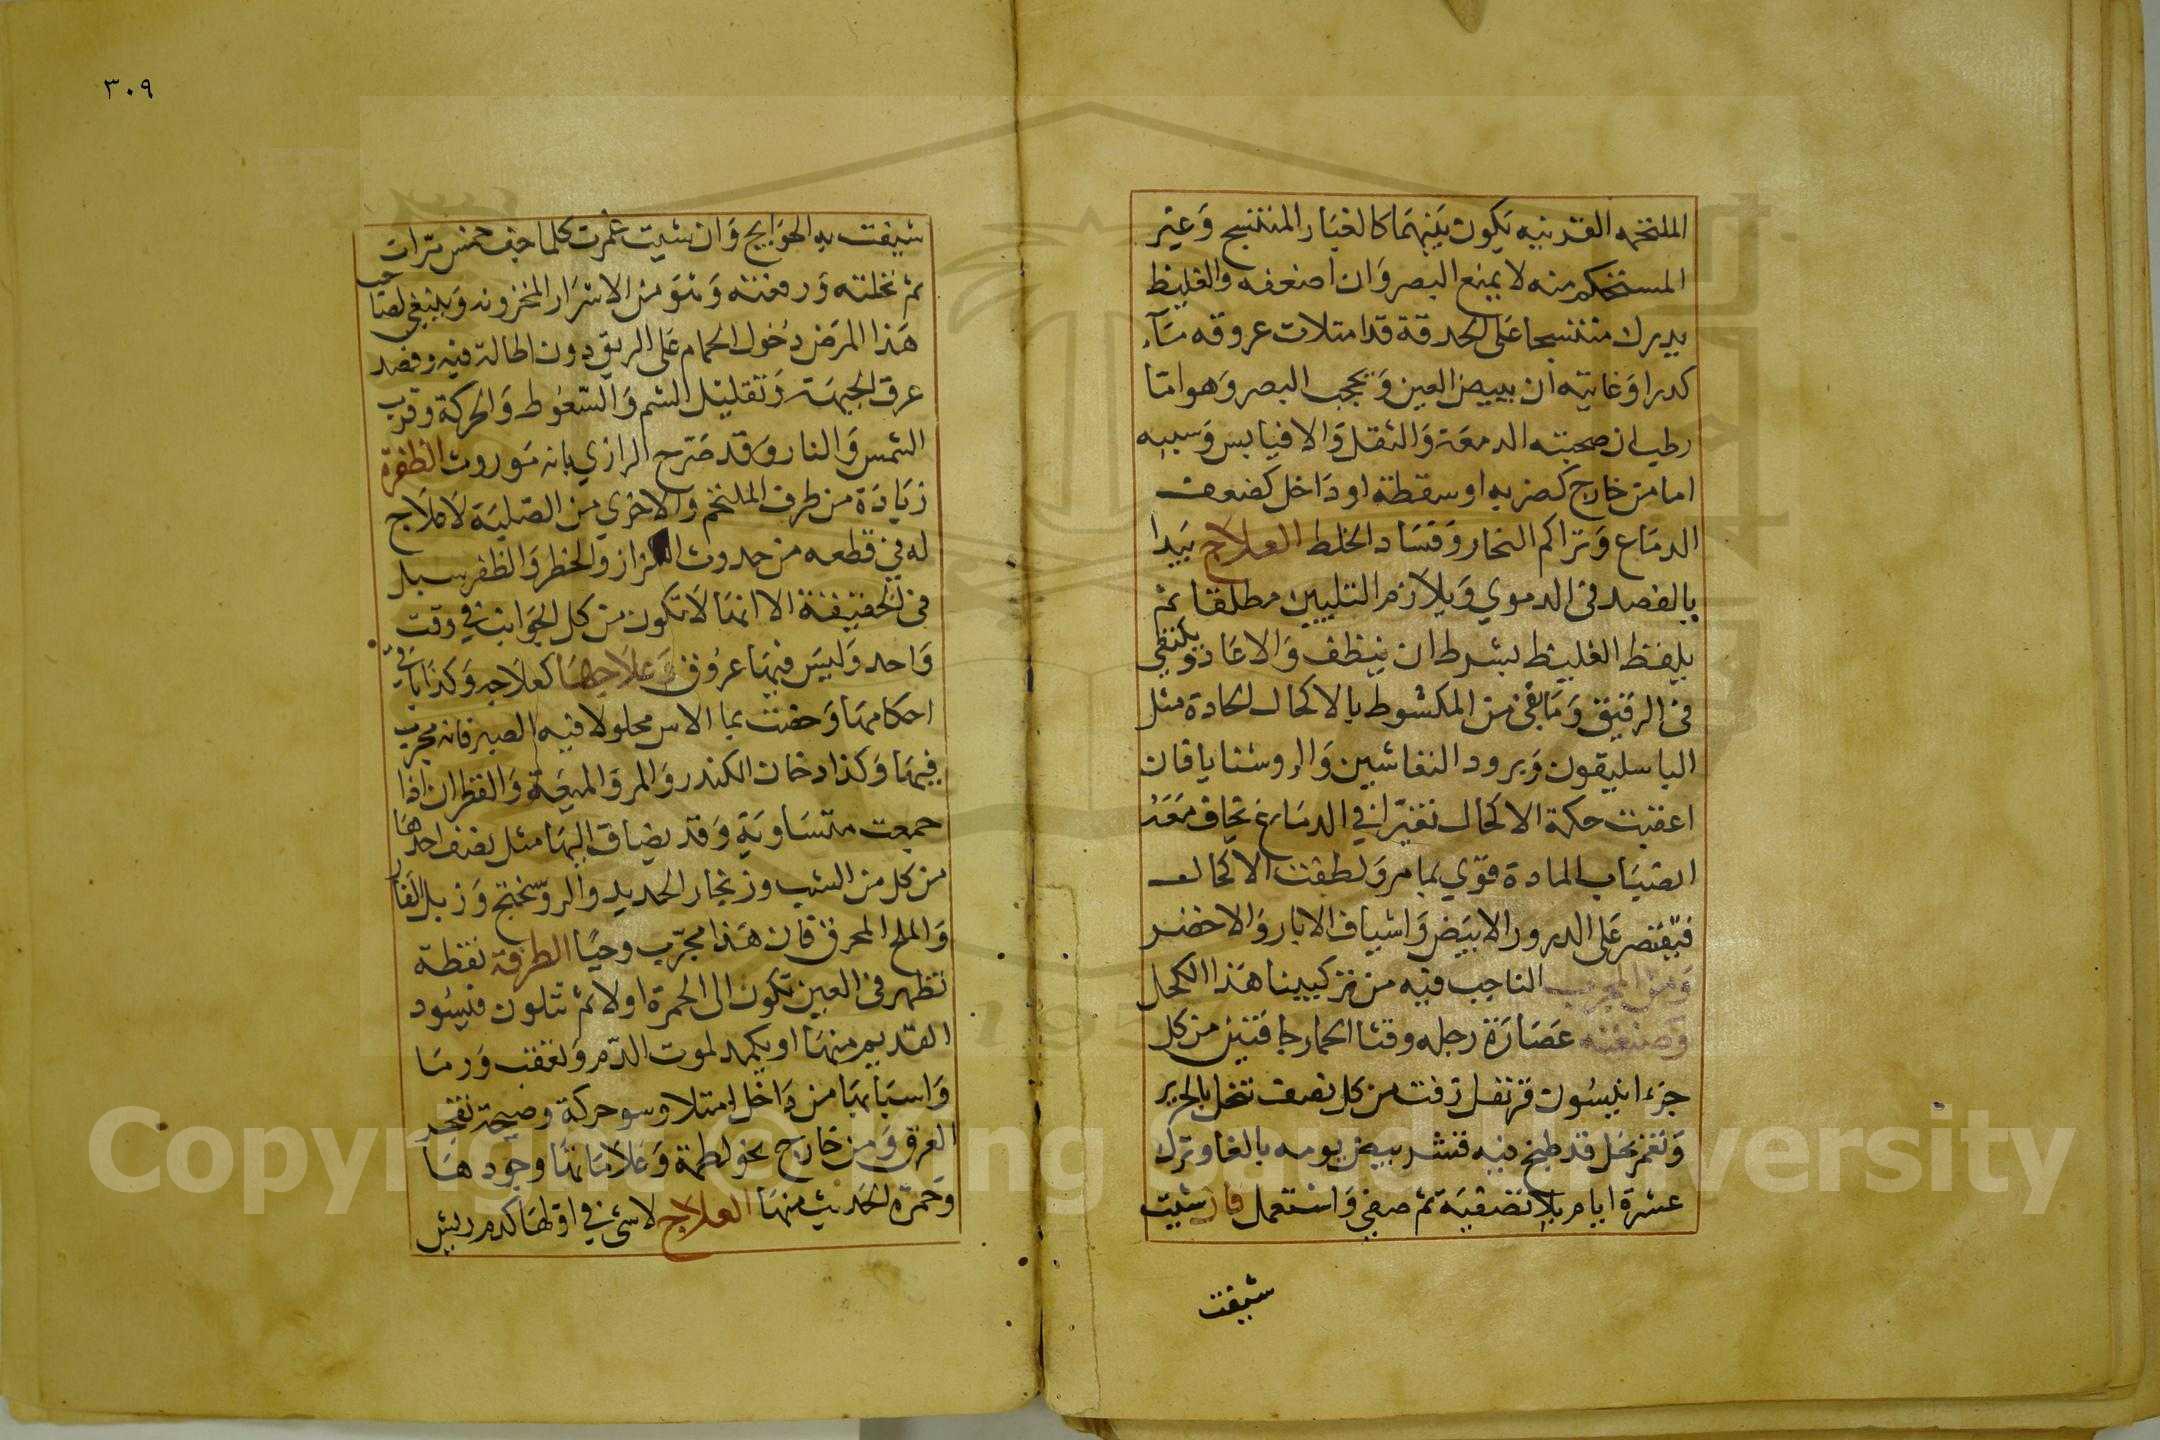 الملتحمه القرنيه يكون بينهما كالغبار المنتسج وغير
المستحكم منه لا يمنع البصر وان اضعفه والغليظ
يدرك منتسجا على الحدقة قد امتلات عروقه مآء
كدرا وغايته ان يبيض العين ويحجب البصر وهو اما
رطب ان صحبته الدمعة والثقل والا فيابس وسببه
اما من خارج كضربه او سقطة او داخل كضعف
الدماغ وتراكم البخار وفساد الخلط العلاج يبدا
بالفصد في الدموي ويلازم التليين مطلقا ثم
يلقط الغليظ بشرط ان ينظف والا عاد ويكتفي
في الرقيق وما بقي من المكشوط بالاكحال الحادة مثل
الباسليقون وبرود النقاشين والروشنايا فان
اعقبت حكة الاكحال تغيرا في الدماغ يخاف معه
انصباب المادة قوي بما مر ولطفت الاكحال
فيقتصر على الدرور الابيض واشياف الابار والاخضر
ومن المجرب الناجب فيه من تركيبنا هذا الكحل
وصنعته عصارة رجله وقثا الحمار جافتين من كل
جزء انيسون قرنفل زفت من كل نصف تنخل بالحرير
وتغمر بخل قد طبخ فيه قشر بيض يومه بالغا وترك
عشرة ايام بلا تصفية ثم صفي واستعمل فان شيت
شيفت
٣٠٩
شيفت به الحوايج وان شيت غمرت كلما جف خمس مرات
ثم نخلته ورفعته وهو من الاسرار المخزونه وينبغي لصاحب
هذا المرض دخول الحمام على الريق دون اطالة فيه وفصد
عرق الجبهة وتقليل الشم والسعوط والحركة وقرب
الشمس والنار وقد صرح الرازي بانه موروث الظفرة
زيادة من طرف الملتحم والاخرى من الصلبة لا علاج
له في قطعه من حدوث الكزاز والخطر والظفر سبل
في الحقيقة الا انها لا تكون من كل الجوانب في وقت
واحد وليس فيها عروق وعلاجها كعلاجه وكذا باقي
احكامها وخصت بما الاس محلولا فيه الصبر فانه مجرب
فيها وكذا دخان الكندر والمر والميعة والقطران اذا
جمعت متساوية وقد يضاف اليها مثل نصف احدها
من كل من الشب وزنجار الحديد والروسختج وزبل الفار
والملح المحرق فان هذا مجرب وحيا الطرفة نقطة
تظهر في العين تكون الى الحمرة اولا ثم تتلون فيسود
القديم منها او يكمد لموت الدم ولعقب ورما
واسبابها من داخل امتلا وسو حركة وصيحة تفجر
العرق ومن خارج نحو لطمة وعلاماتها وجودها
وحمرة الحديث منها العلاج لا شئ في اولها كدم ريش